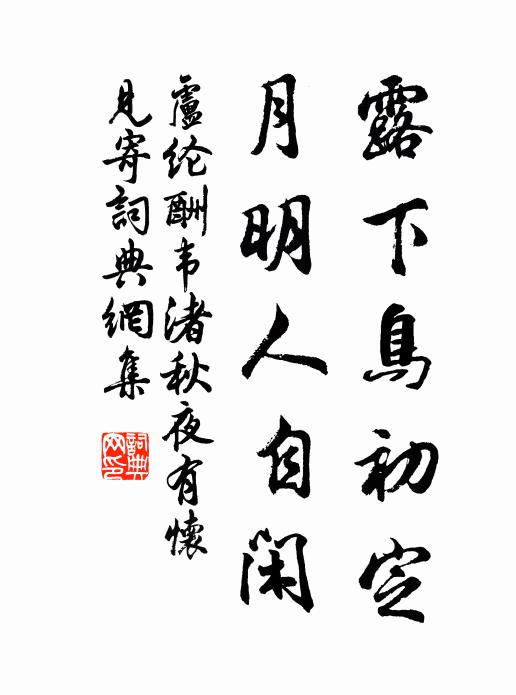 露下鳥初定
月明人自閑
盧纶酬韦渚秋夜有懷
見寄詞典網集
詞典網印